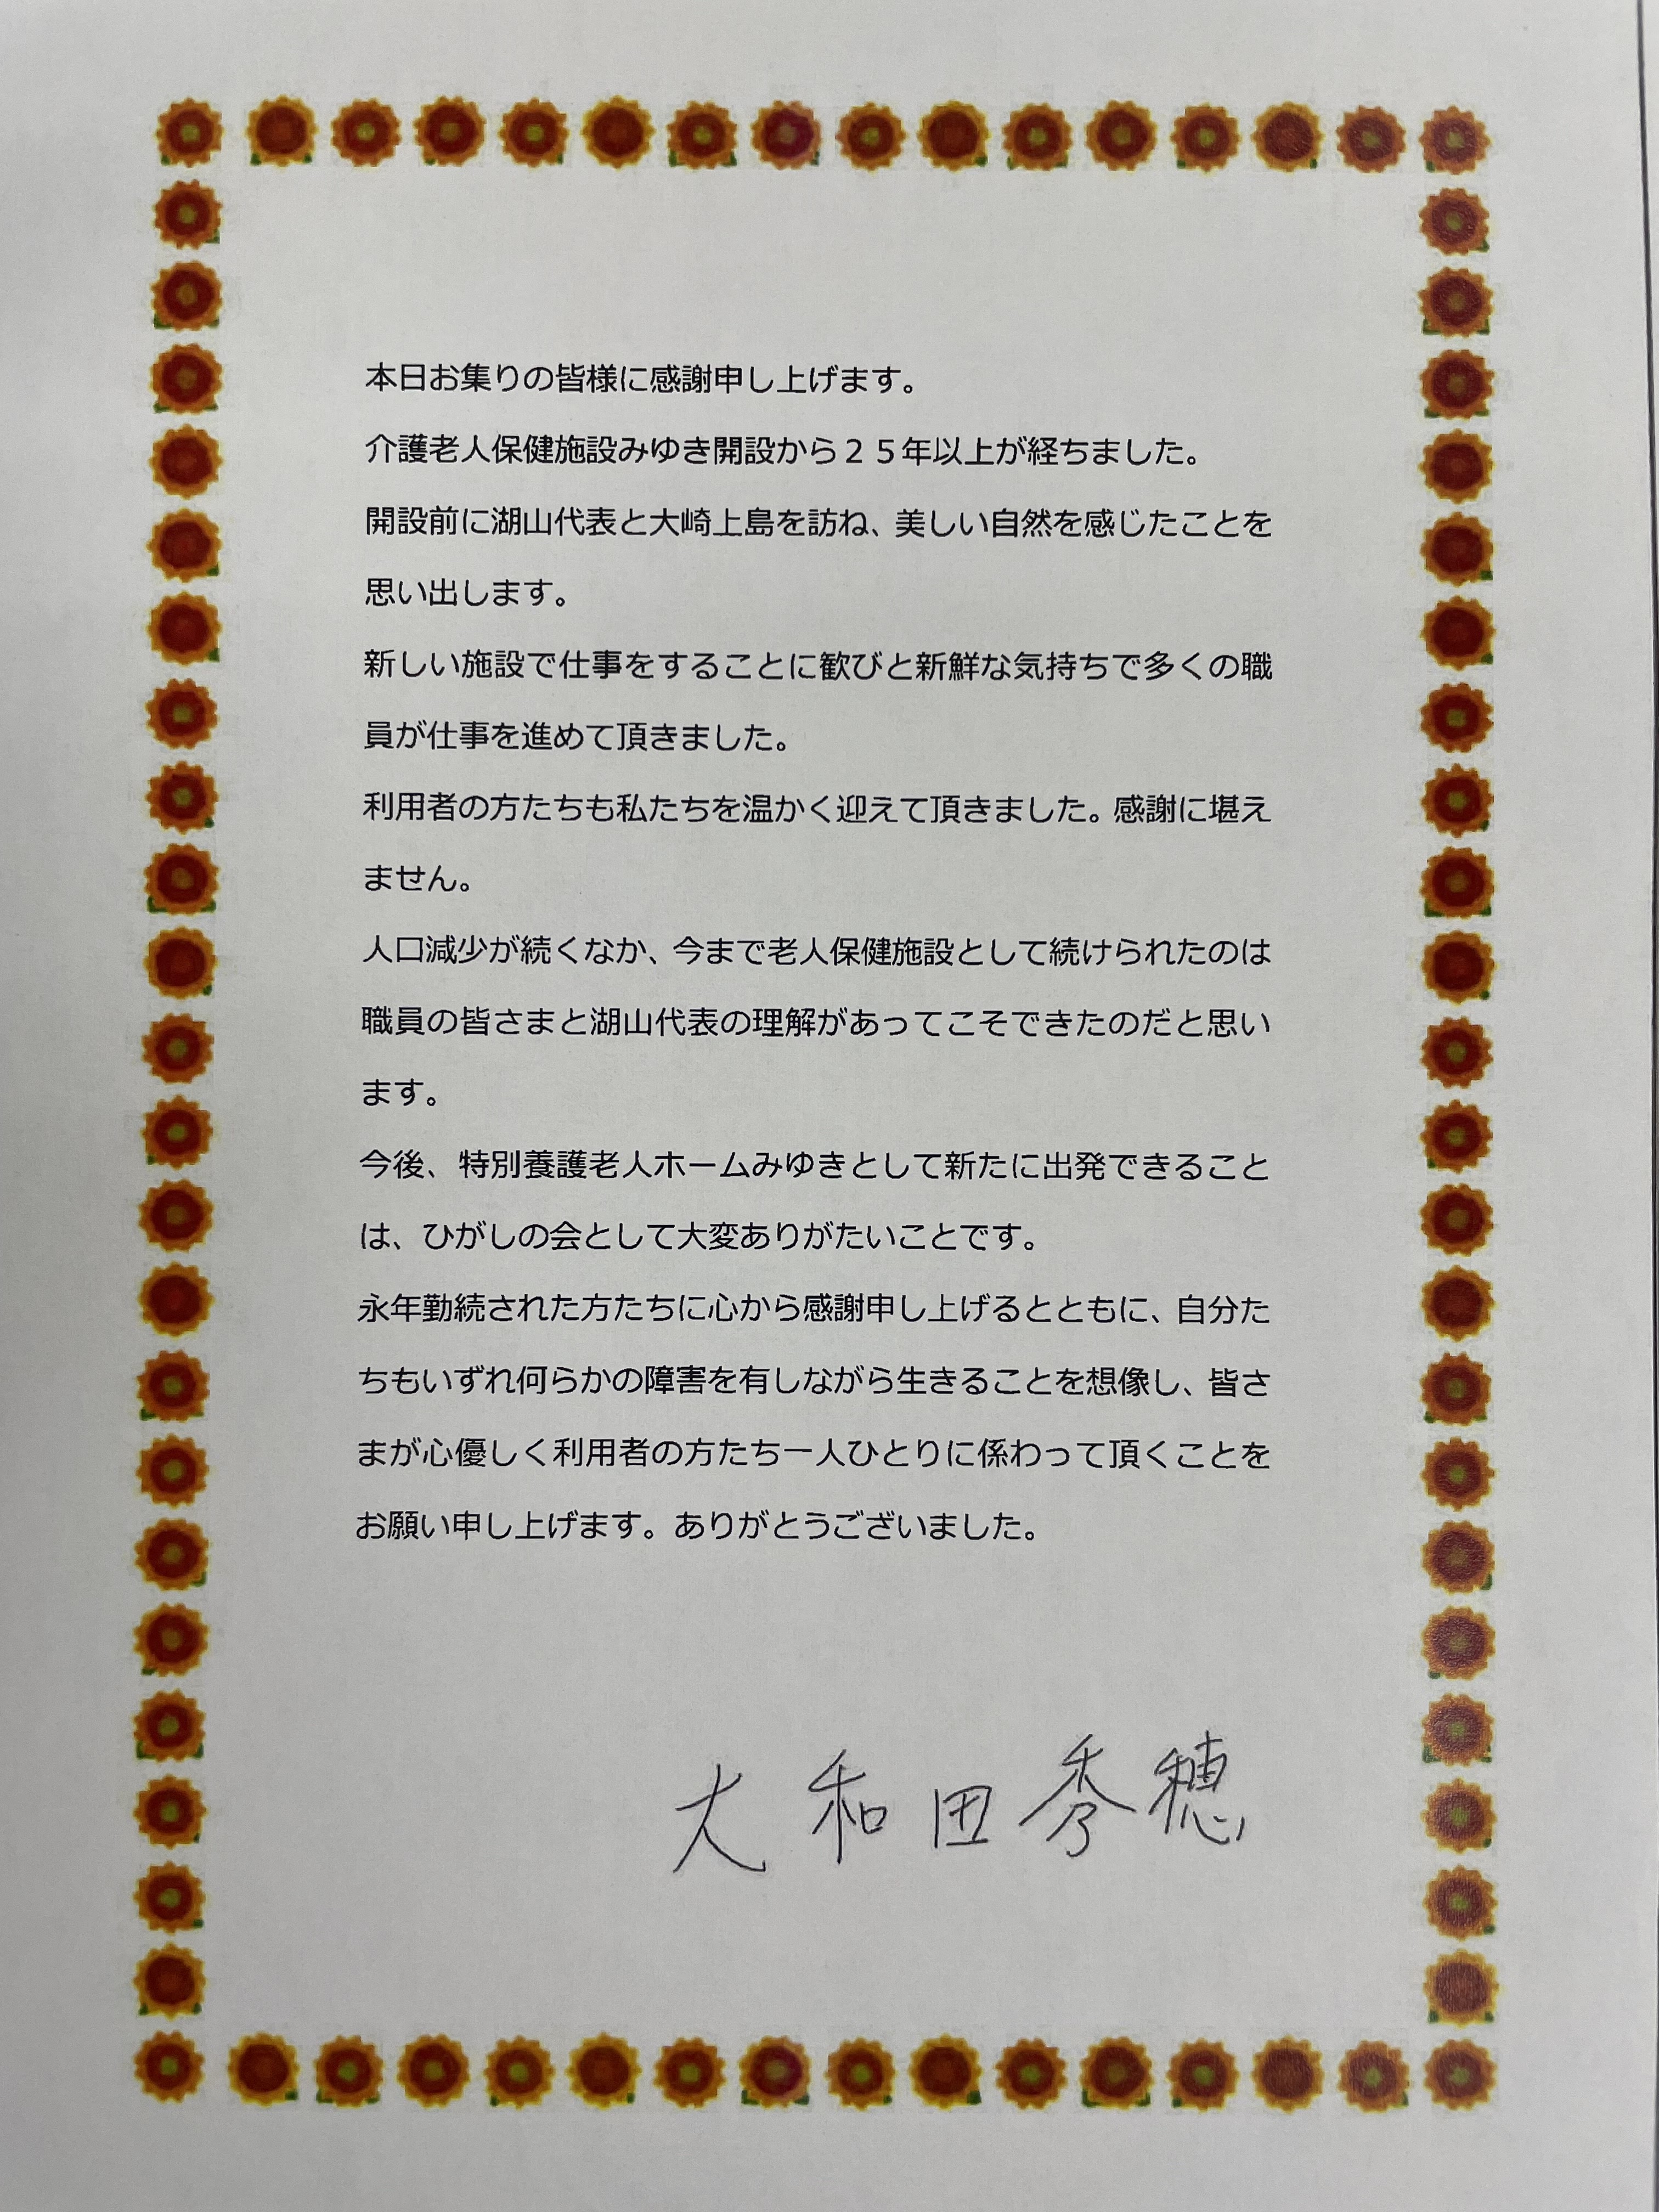 本日お集りの皆様に感謝申し上げます。
介護老人保健施設みゆき開設から２５年以上が経ちました。
開設前に湖山代表と大崎上島を訪ね、美しい自然を感じたことを
思い出します。
新しい施設で仕事をすることに歓びと新鮮な気持ちで多くの職
員が仕事を進めて頂きました。
利用者の方たちも私たちを温かく迎えて頂きました。感謝に堪え
ません。
人口減少が続くなか、今まで老人保健施設として続けられたのは
職員の皆さまと湖山代表の理解があってこそできたのだと思い
ます。
今後、特別養護老人ホームみゆきとして新たに出発できること
は、ひがしの会として大変ありがたいことです。
永年勤続された方たちに心から感謝申し上げるとともに、自分た
ちもいずれ何らかの障害を有しながら生きることを想像し、皆さ
まが心優しく利用者の方たち一人ひとりに係わって頂くことを
お願い申し上げます。ありがとうございました。
大和田秀穂